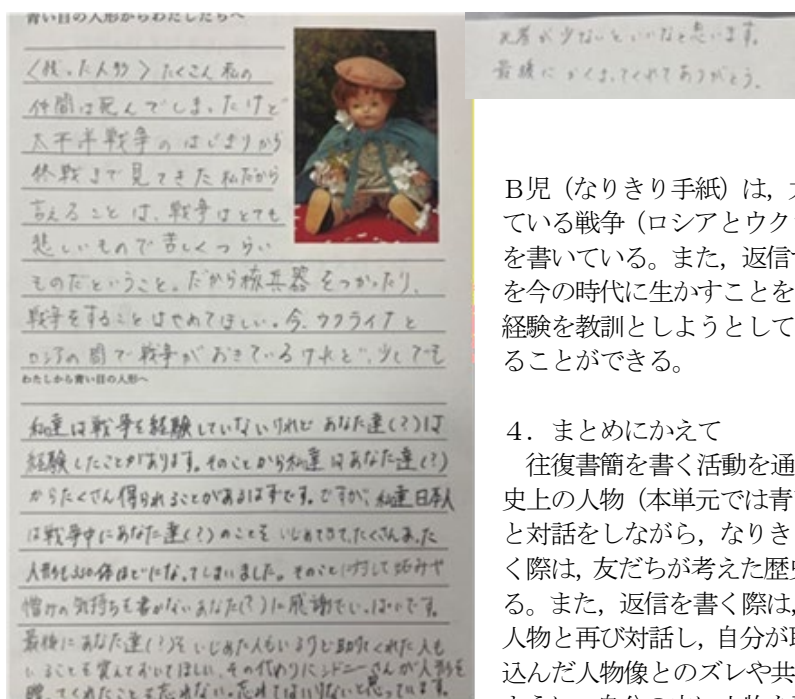 青い目の人形からわたしたちへ
〈残った人形〉たくさん私の
仲間は死んでしまったけど
太平洋戦争のはじまりから
終戦まで見てきた私だから
言えることは、戦争はとても
悲しいもので苦しくつらい
ものだということ。だから核兵器をつかったり、
戦争をすることはやめてほしい。今、ウクライナと
ロシアの間で戦争がおきているけれど、少しでも
死者が少ないといいなと思います。
最後にかくまってくれてありがとう。
わたしから青い目の人形へ
私達は戦争を経験していないけれど あなた達(?)は
経験したことがあります。そのことから私達はあなた達(?)
からたくさん得られることがあるはずです。ですが、私達日本人
は戦争中にあなた達(?)のことをいじめてきて、たくさんあった
人形も330体ほどになってしまいました。そのことに対して
憎しみの気持ちを書かないあなた(?)に感謝でいっぱいです。
最後にあなた達(?)をいじめた人もいるけど助けてくれた人も
いることを覚えておいてほしい。その代わりにシドニーさんが人形を
贈ってくれたことを忘れない、忘れてはいけないと思っています。
B児(なりきり手紙)は,
ている戦争(ロシアとウク
を書いている。また,返信
を今の時代に生かすことを
経験を教訓としようとして
ることができる。
4.まとめにかえて
往復書簡を書く活動を通
史上の人物(本単元では青
と対話をしながら,なりき
く際は,友だちが考えた歴
る。また,返信を書く際は,
人物と再び対話し,自分が
込んだ人物像とのズレや共